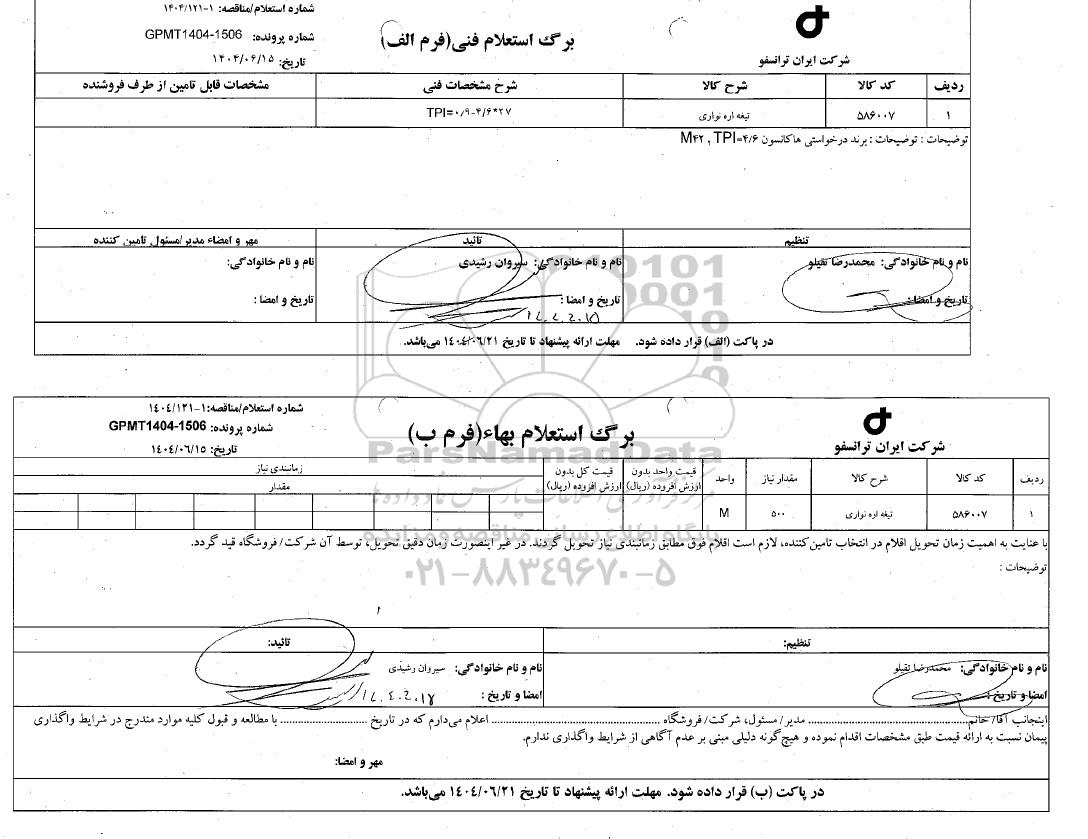 شماره استعلام/مناقصه: ۱-۱۴۰۴/۱۲۱
برگ استعلام فنی(فرم الف)
شماره پرونده: GPMT1404-1506
شرکت ایران ترانسفو
تاریخ: ۱۴۰۴/۰۶/۱۵
ردیف کد کالا شرح کالا شرح مشخصات فنی مشخصات قابل تامین از طرف فروشنده
۱ ۵۸۶۰۰۷ تیغه اره نواری TPI=۰/۹-۴/۶*۲۷
توضیحات : توضیحات : برند درخواستی هاکانسون M۴۲ , TPI=۴/۶
تنظیم تائید مهر و امضاء مدیر/مسئول تامین کننده
نام و نام خانوادگی: محمدرضا تقیلو نام و نام خانوادگی: سیروان رشیدی نام و نام خانوادگی:
تاریخ و امضا: تاریخ و امضا : تاریخ و امضا :
در پاکت (الف) قرار داده شود. مهلت ارائه پیشنهاد تا تاریخ ۱٤۰٤/۰٦/۲۱ می‌باشد.
شماره استعلام/مناقصه:۱-۱٤۰٤/۱۲۱
برگ استعلام بهاء(فرم ب)
شماره پرونده: GPMT1404-1506
شرکت ایران ترانسفو
تاریخ: ۱٤۰٤/۰٦/۱۵
ParsNamadData
ردیف کد کالا شرح کالا مقدار نیاز واحد قیمت واحد بدون ارزش افزوده (ریال) قیمت کل بدون ارزش افزوده (ریال) زمانبندی نیاز
مقدار
۱ ۵۸۶۰۰۷ تیغه اره نواری ۵۰۰ M
با عنایت به اهمیت زمان تحویل اقلام در انتخاب تامین‌کننده، لازم است اقلام فوق مطابق زمانبندی نیاز تحویل گردند. در غیر اینصورت زمان دقیق تحویل، توسط آن شرکت/ فروشگاه قید گردد.
توضیحات :
۰۲۱-۸۸۳۴۹۶۷۰-۵
تنظیم: تائید:
نام و نام خانوادگی: محمدرضا تقیلو نام و نام خانوادگی: سیروان رشیدی
امضا و تاریخ : امضا و تاریخ :
اینجانب آقا/ خانم................ مدیر/ مسئول، شرکت/ فروشگاه ................ اعلام می‌دارم که در تاریخ ................ با مطالعه و قبول کلیه موارد مندرج در شرایط واگذاری
پیمان نسبت به ارائه قیمت طبق مشخصات اقدام نموده و هیچ‌گونه دلیلی مبنی بر عدم آگاهی از شرایط واگذاری ندارم.
مهر و امضا:
در پاکت (ب) قرار داده شود. مهلت ارائه پیشنهاد تا تاریخ ۱٤۰٤/۰٦/۲۱ می‌باشد.